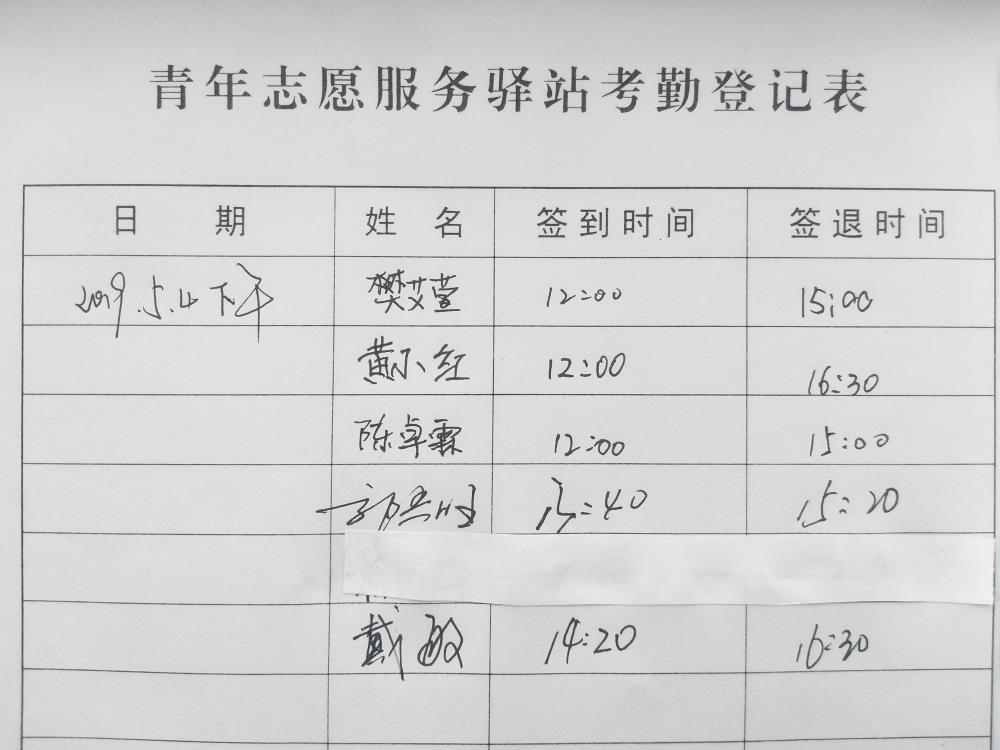 青年志愿服务驿站考勤登记表
日 期 姓 名 签到时间 签退时间
2019.5.4下午 樊艾萱 12:00 15:00
黄小红 12:00 16:30
陈卓霖 12:00 15:00
13:40 15:20
戴敏 14:20 16:30